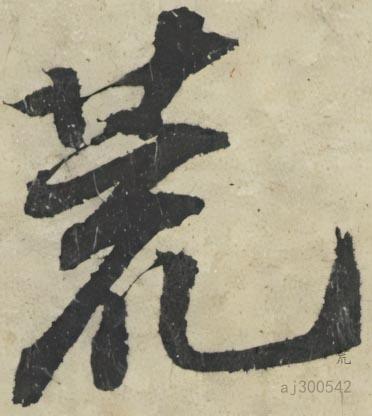 荒
荒
aj300542